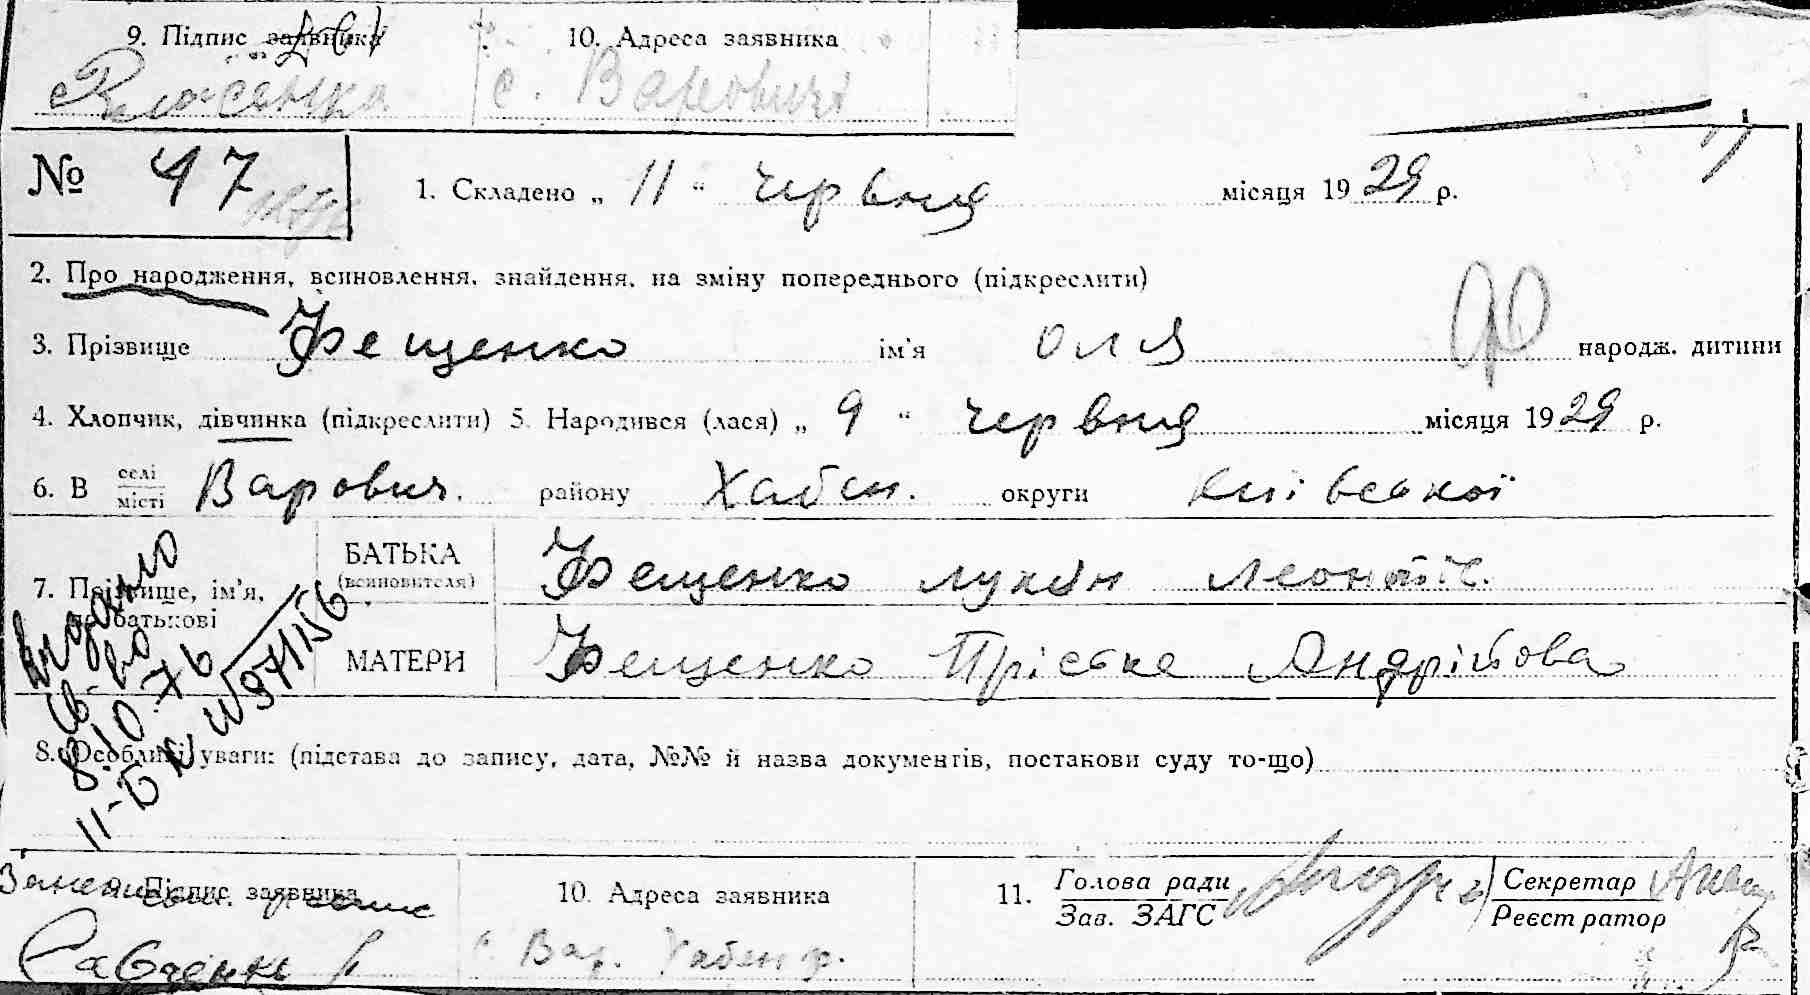 9. Підпис заявника 10. Адреса заявника
с. Варовичі
№ 47 1. Складено „ 11 “ червня місяця 1929 р.
2. Про народження, всиновлення, знайдення, на зміну попереднього (підкреслити)
3. Прізвище Фещенко ім'я Оля народж. дитини
4. Хлопчик, дівчинка (підкреслити) 5. Народився (лася) „ 9 “ червня місяця 1929 р.
6. В селі місті Варович. району Хабен. округи київської
7. Прізвище, ім'я, по батькові
БАТЬКА (всиновителя) Фещенко Лукян Леонтів.
МАТЕРИ Фещенко Пріська Андрійова
Видано
св-во
8.10.76
II-БК № 971156
8. Особливі уваги: (підстава до запису, дата, №№ й назва документів, постакови суду то-що)
9. Підпис заявника 10. Адреса заявника 11. Голова ради Зав. ЗАГС Секретар Реєстратор
с. Вар. Хабен р.